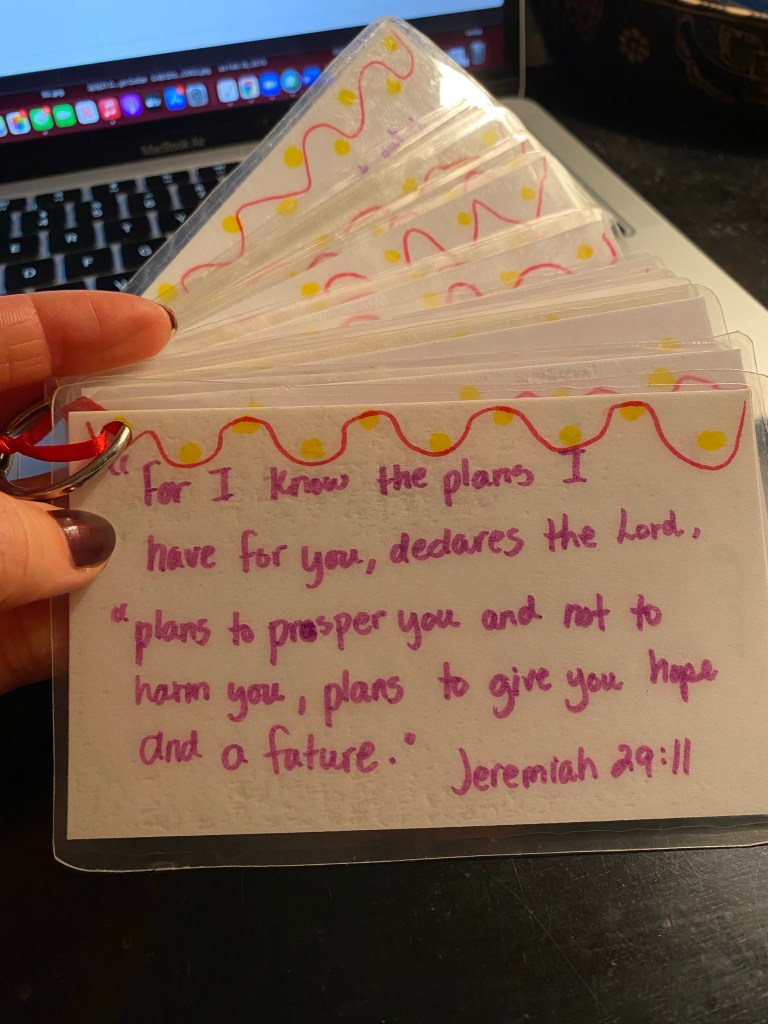 MacBook Air
“For I know the plans I
have for you, declares the Lord,
“plans to prosper you and not to
harm you, plans to give you hope
and a future.”
Jeremiah 29:11